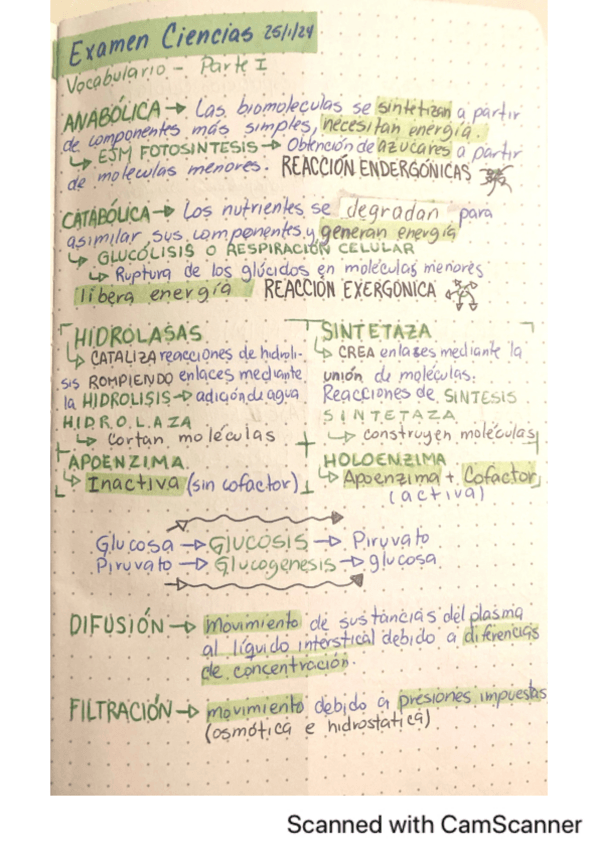 Examen Ciencias 25/1/24
Vocabulario - Parte I
ANABÓLICA → Las biomoleculas se sintetizan a partir
de componentes más simples, necesitan energía.
↳ EJM FOTOSINTESIS → Obtención de azucares a partir
de moleculas menores. REACCIÓN ENDERGÓNICAS
CATABÓLICA → Los nutrientes se degradan para
asimilar sus componentes y generan energía
↳ GLUCÓLISIS O RESPIRACIÓN CELULAR
↳ Ruptura de los glúcidos en moléculas menores
libera energía REACCIÓN EXERGÓNICA
HIDROLASAS
↳ CATALIZA reacciones de hidroli-
sis ROMPIENDO enlaces mediante
la HIDROLISIS → adición de agua
HIDROLAZA
↳ Cortan moléculas
APOENZIMA
↳ Inactiva (sin cofactor)
SINTETAZA
↳ CREA enlases mediante la
unión de moleculas.
Reacciones de SINTESIS
SINTETAZA
↳ construyen moléculas
HOLOENZIMA
↳ Apoenzima + Cofactor
(activa)
Glucosa → GlUCOSIS → Piruvato
Piruvato → Glucogenesis → glucosa
DIFUSIÓN → movimiento de sustancias del plasma
al líquido interstical debido a diferencias
de concentración.
FILTRACIÓN → movimiento debido a presiones impuestas
(osmótica e hidrostatica)
Scanned with CamScanner